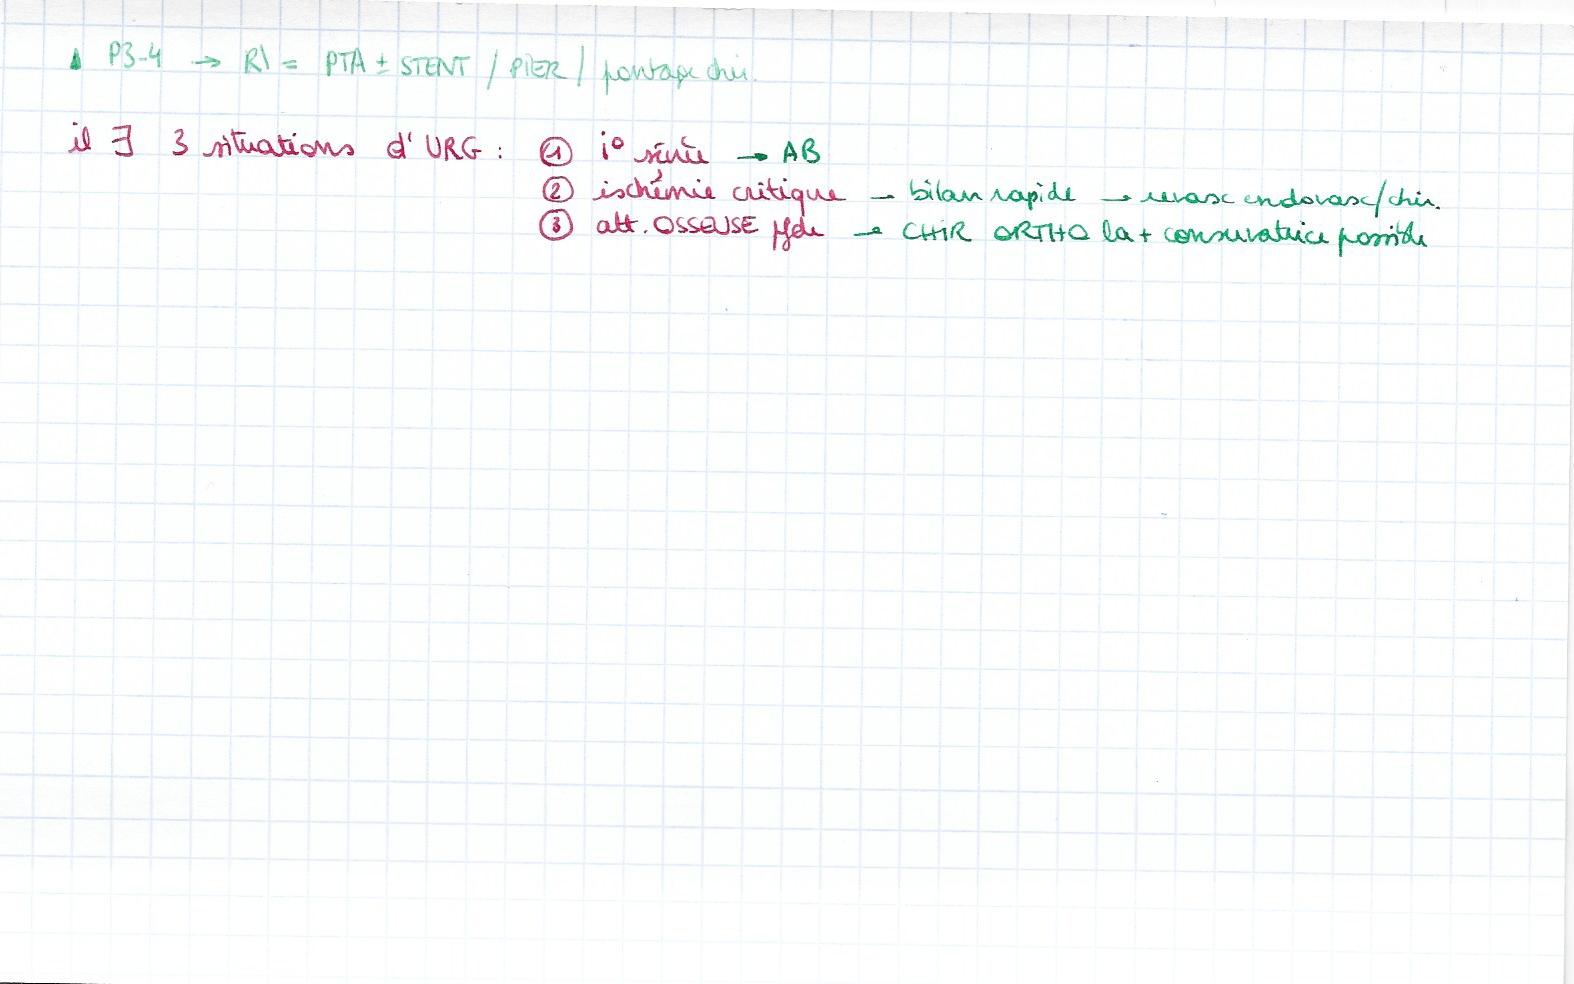 P3-4 → RI = PTA ± STENT / PIER / pontage chir.
il ∃ 3 situations d'URG : ① i° sévère → AB
② ischémie critique → bilan rapide → revasc endovasc/chir.
③ att. OSSEUSE pfde → CHIR ORTHO la + conservatrice possible